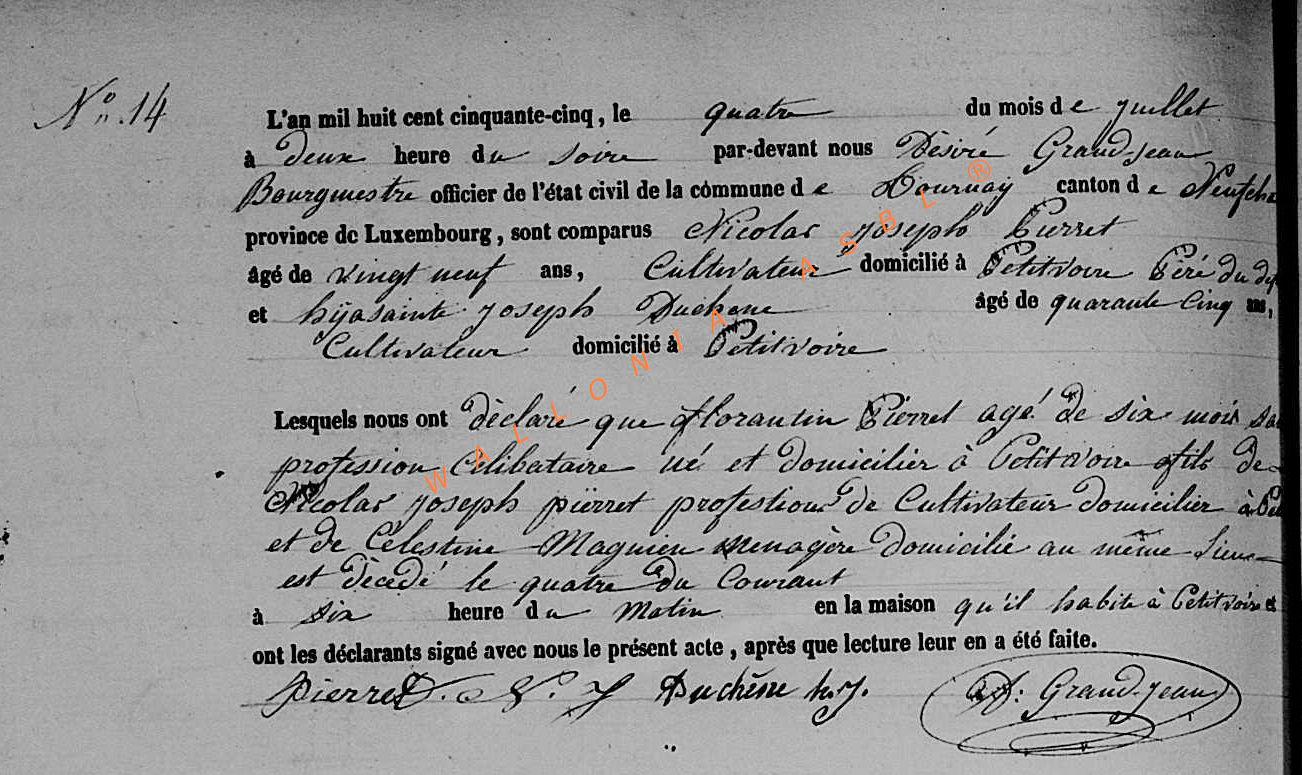 N° 14
L'an mil huit cent cinquante-cinq, le quatre du mois de juillet
à deux heure du soire par-devant nous Dèsiré Grand-jean
Bourgmestre officier de l'état civil de la commune de Tournay canton de Neufcha
province de Luxembourg, sont comparus Nicolas joseph Pierret
âgé de vingt neuf ans, Cultivateur domicilié à Petitvoire Péré du
et hijasainte joseph Duchene âgé de quarante cinq ans,
Cultivateur domicilié à Petitvoire
Lesquels nous ont dèclaré que florantin Pierret agé de six mois sa
profession Célibataire né et domicilier à Petitvoire fils de
Nicolas joseph pierret profession de Cultivateur domicilier à Pe
et de Célestine Magnien menagère domicilié au même Lieu
est dècedé le quatre du Courant
à six heure du Matin en la maison qu'il habite à Petitvoire et
ont les déclarants signé avec nous le présent acte, après que lecture leur en a été faite.
Pierret N. J Duchêne h.j. D. Grand-jean
WALLONIA ASBL ®